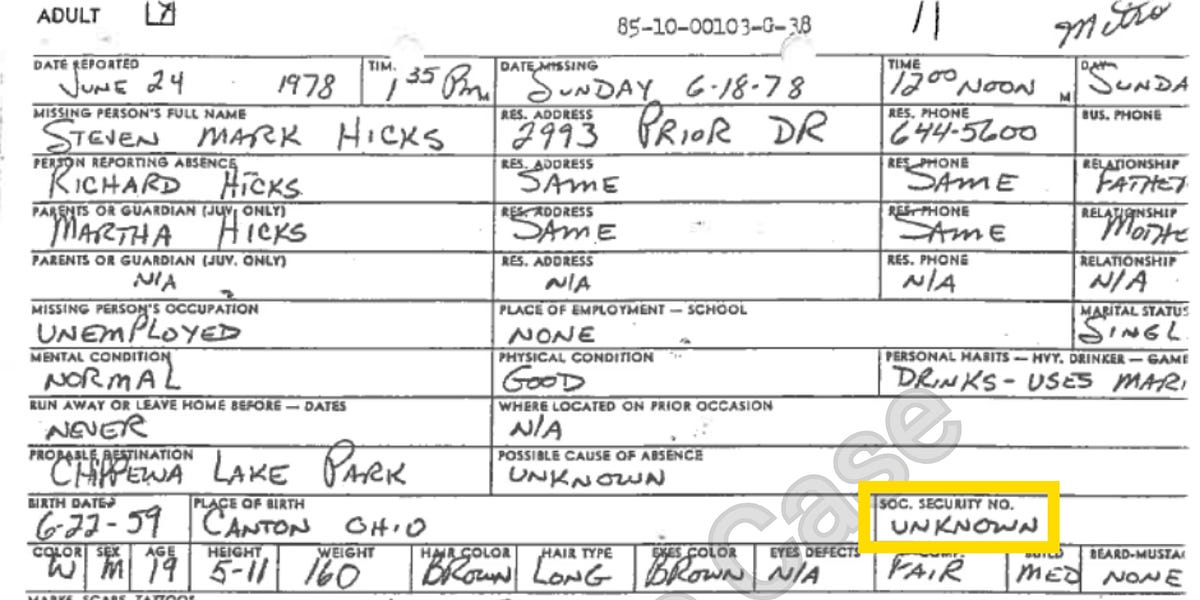 ADULT 85-10-00103-G-38 11 Metro
DATE REPORTED TIM. DATE MISSING TIME DAY
JUNE 24 1978 1 35 Pm M SUNDAY 6-18-78 12 00 NOON M SUNDA
MISSING PERSON'S FULL NAME RES. ADDRESS RES. PHONE BUS. PHONE
STEVEN MARK HICKS 2993 PRIOR DR 644-5600
PERSON REPORTING ABSENCE RES. ADDRESS RES. PHONE RELATIONSHIP
RICHARD HICKS SAME SAME FATHE
PARENTS OR GUARDIAN (JUV. ONLY) RES. ADDRESS RES. PHONE RELATIONSHIP
MARTHA HICKS SAME SAME MOTHE
PARENTS OR GUARDIAN (JUV. ONLY) RES. ADDRESS RES. PHONE RELATIONSHIP
N/A N/A N/A N/A
MISSING PERSON'S OCCUPATION PLACE OF EMPLOYMENT — SCHOOL MARITAL STATUS
UNEMPLOYED NONE SINGL
MENTAL CONDITION PHYSICAL CONDITION PERSONAL HABITS — HVY. DRINKER — GAME
NORMAL GOOD DRINKS - USES MARI
RUN AWAY OR LEAVE HOME BEFORE — DATES WHERE LOCATED ON PRIOR OCCASION
NEVER N/A
PROBABLE DESTINATION POSSIBLE CAUSE OF ABSENCE
CHIPPEWA LAKE PARK UNKNOWN
BIRTH DATE PLACE OF BIRTH SOC. SECURITY NO.
6-22-59 CANTON OHIO UNKNOWN
COLOR SEX AGE HEIGHT WEIGHT HAIR COLOR HAIR TYPE EYES COLOR EYES DEFECTS COMP. BUILD BEARD-MUSTA
W M 19 5-11 160 BROWN LONG BROWN N/A FAIR MED NONE
MARKS SCARS TATTOOS
Case